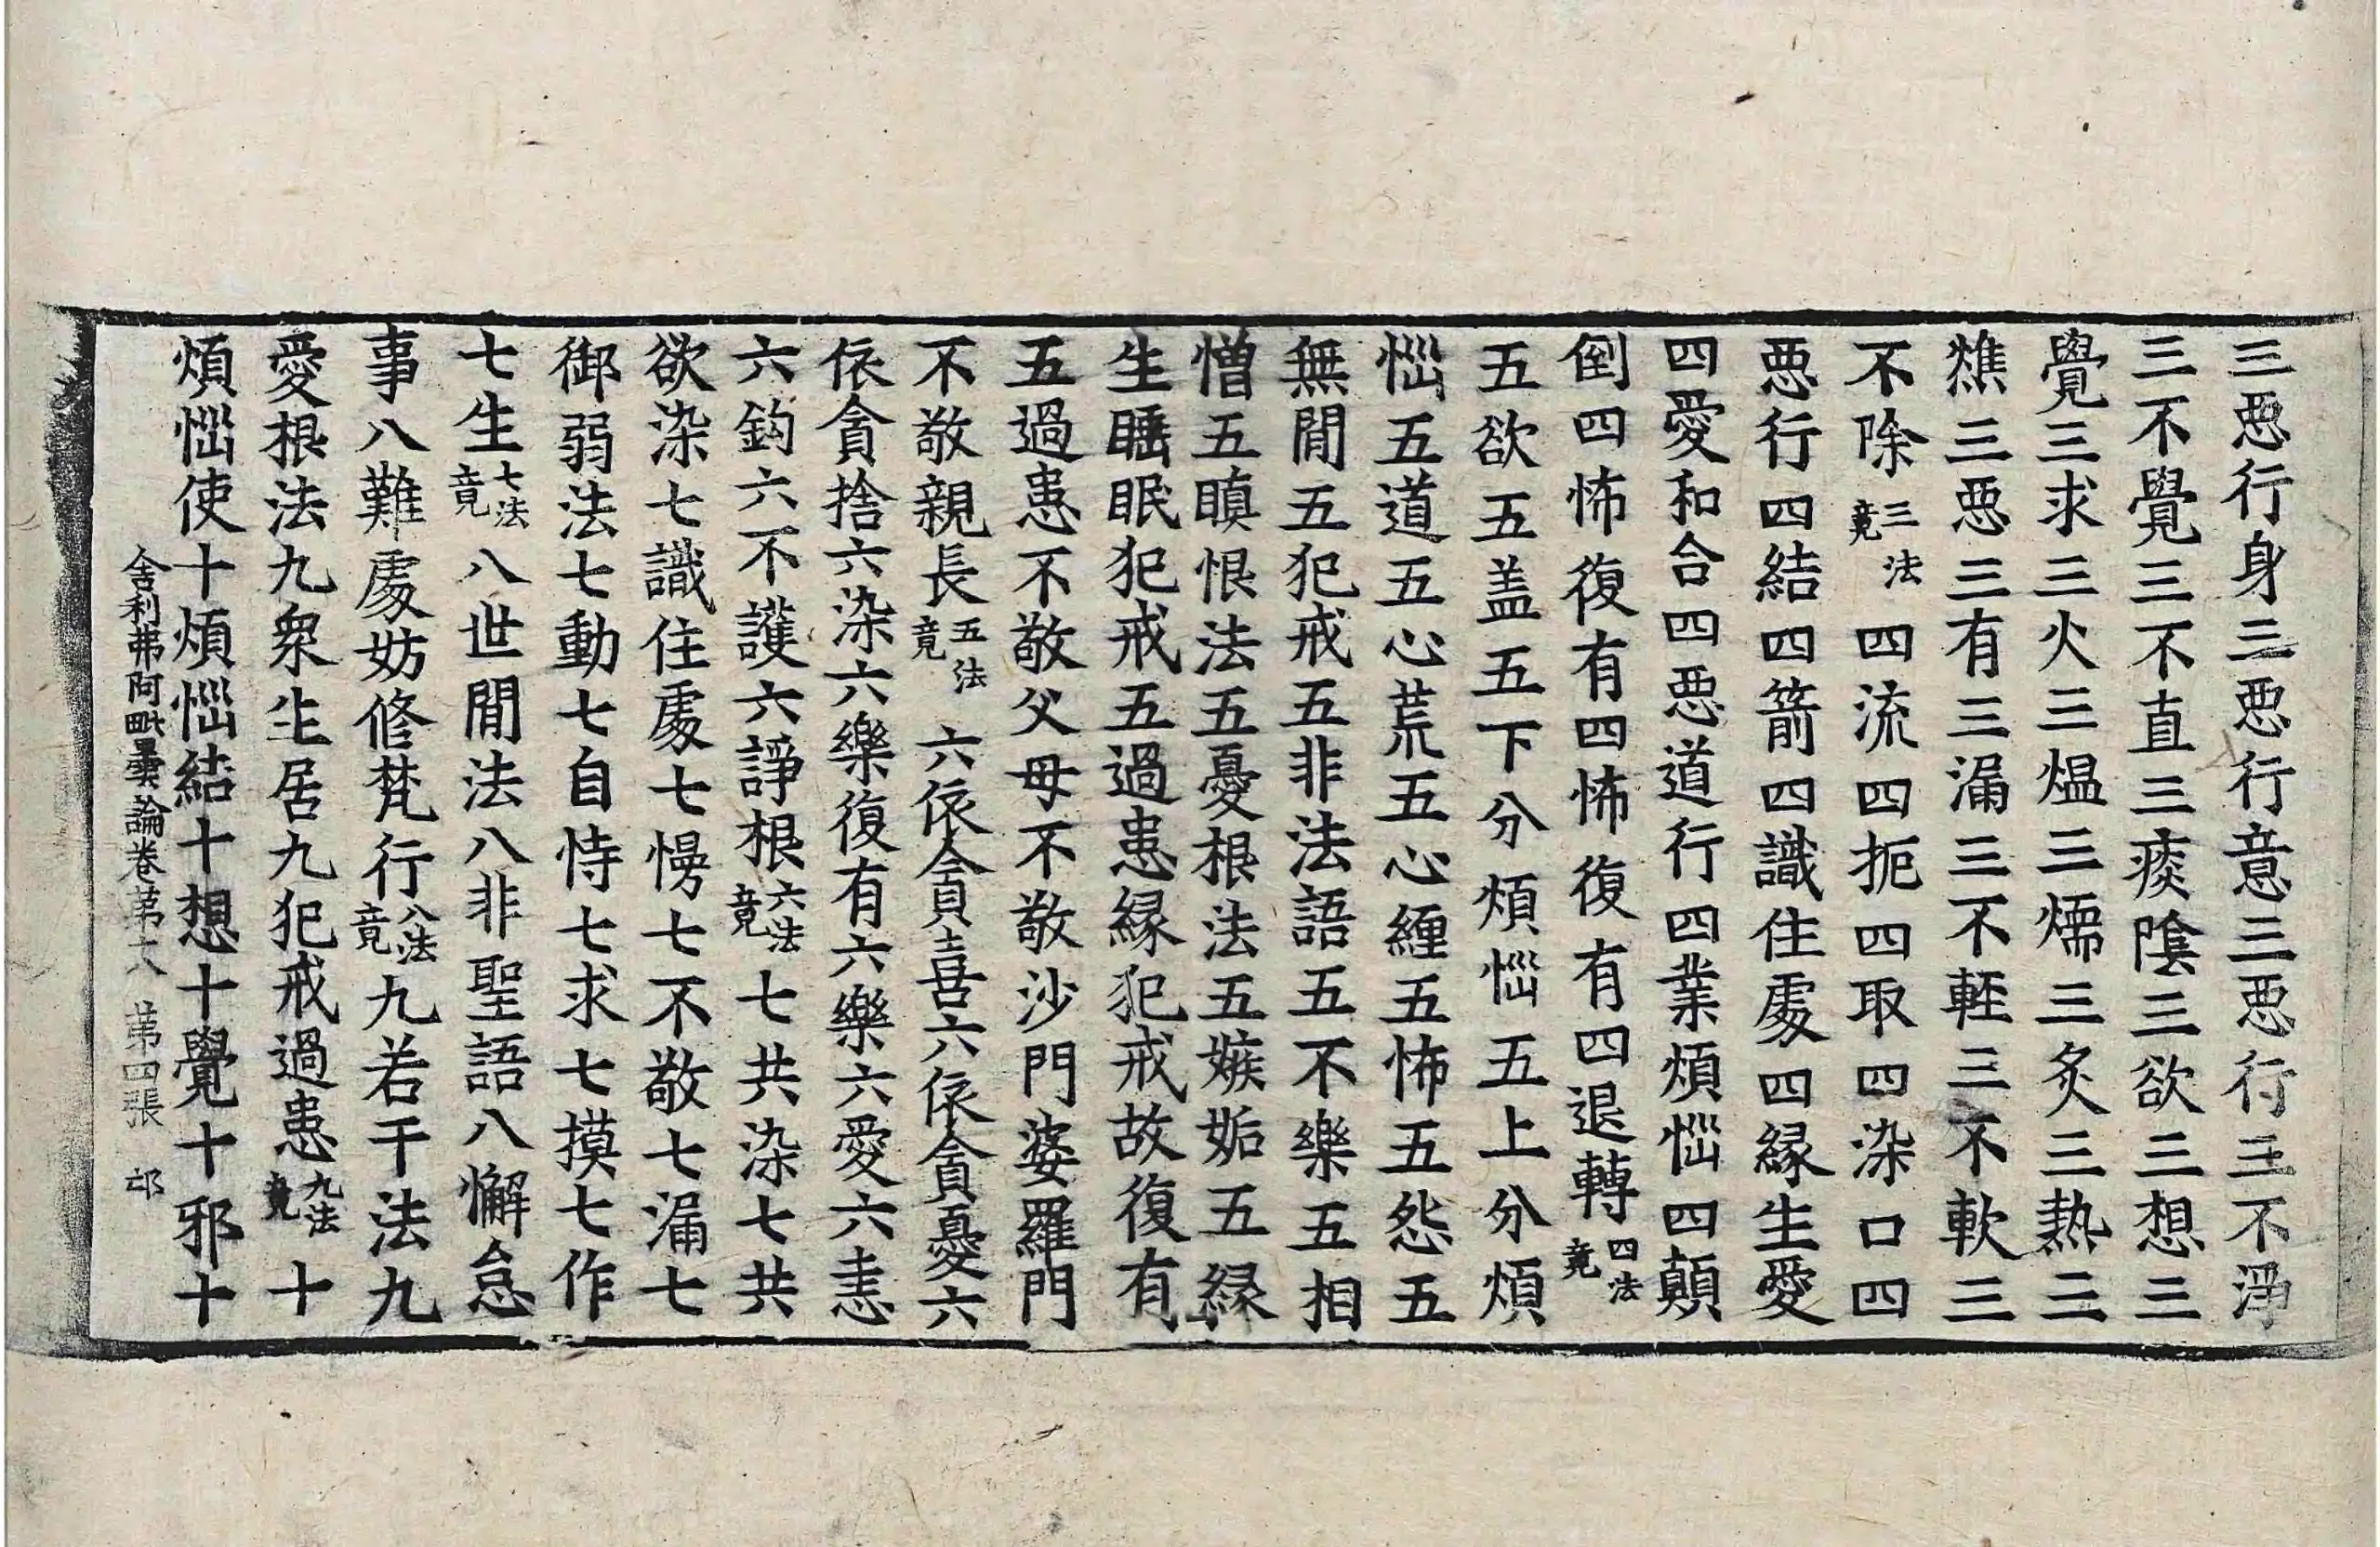 三惡行身三惡行意三惡行三不淨
三不覺三不直三痰陰三欲三想三
覺三求三火三熅三燸三炙三熱三
燋三惡三有三漏三不輕三不軟三
不除三法竟四流四扼四取四染口四
惡行四結四箭四識住處四緣生愛
四愛和合四惡道行四業煩惱四顛
倒四怖復有四怖復有四退轉四法竟
五欲五盖五下分煩惱五上分煩
惱五道五心荒五心纏五怖五怨五
無閒五犯戒五非法語五不樂五相
憎五瞋恨法五憂根法五嫉妬五緣
生睡眠犯戒五過患緣犯戒故復有
五過患不敬父母不敬沙門婆羅門
不敬親長五法竟六依貪喜六依貪憂六
依貪捨六染六樂復有六樂六愛六恚
六鈎六不護六諍根六法竟七共染七共
欲染七識住處七慢七不敬七漏七
御弱法七動七自恃七求七摸七作
七生七法竟八世閒法八非聖語八懈怠
事八難處妨修梵行八法竟九若干法九
愛根法九衆生居九犯戒過患九法竟十
煩惱使十煩惱結十想十覺十邪十
舍利弗阿毗曇論卷第十八 第四張 邙